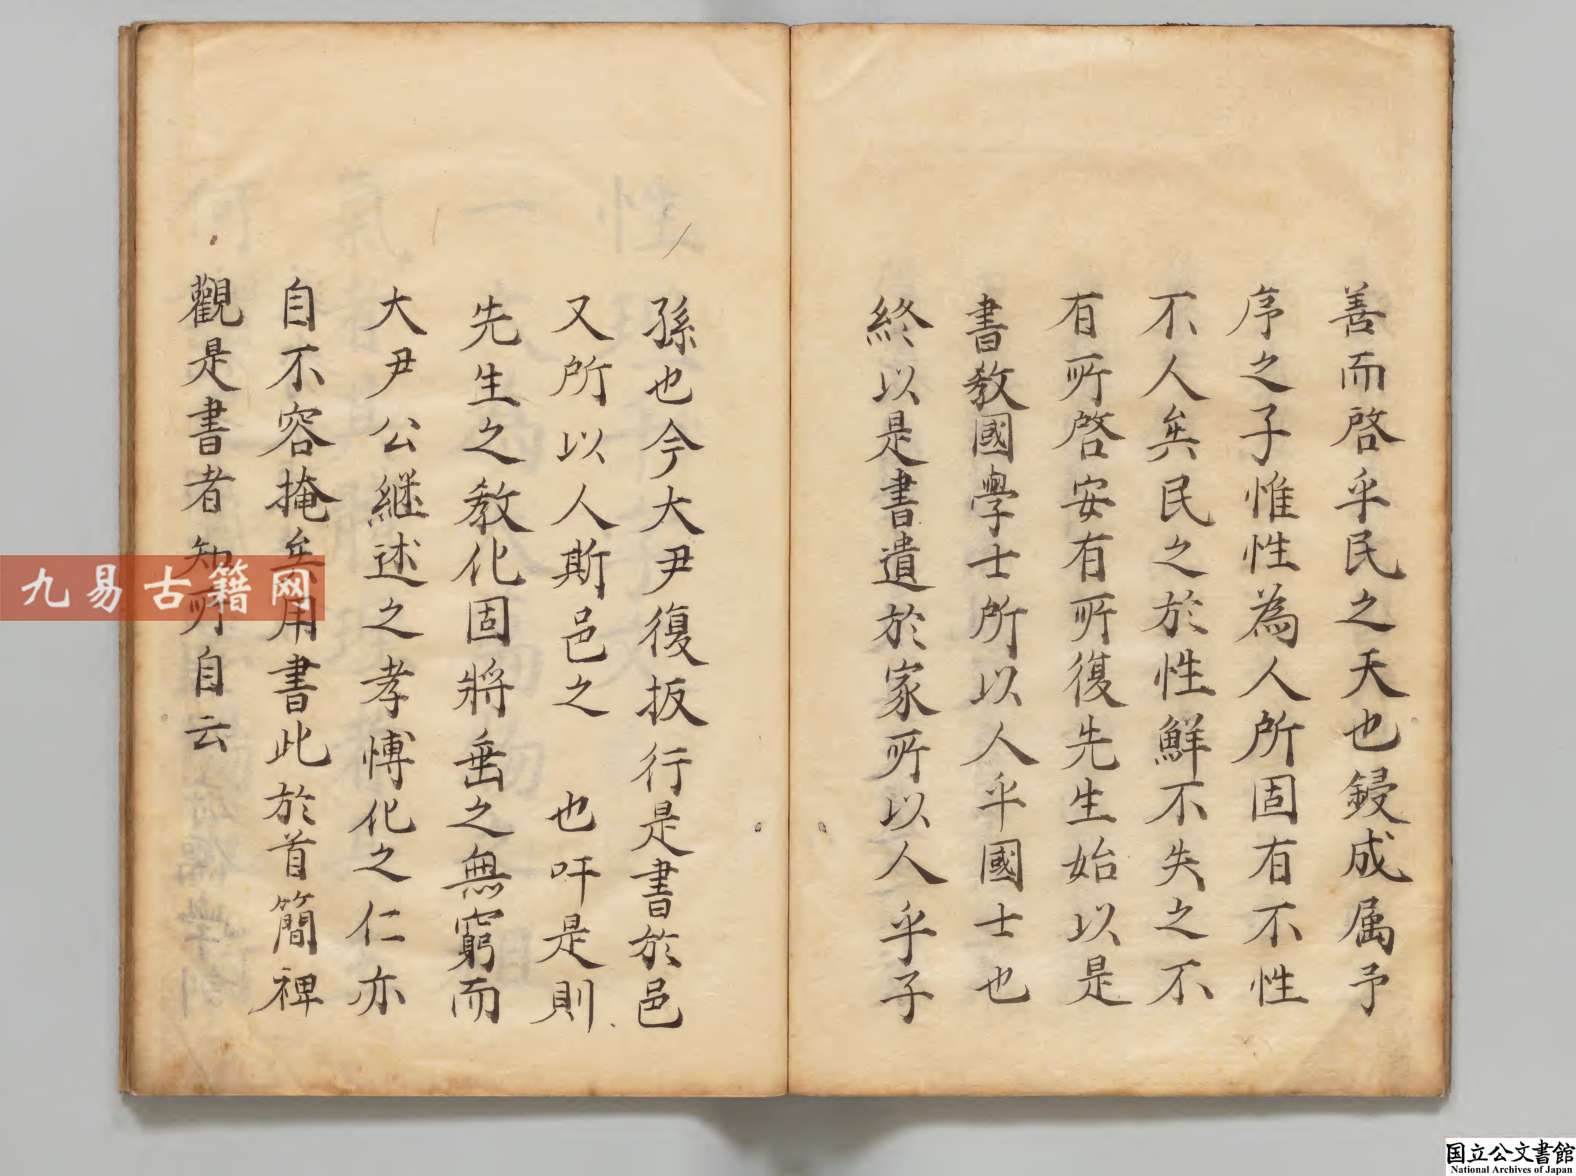 善而啓乎民之天也鋟成属予
序之子惟性為人所固有不性
不人矣民之於性鮮不失之不
有所啓安有所復先生始以是
書教國學士所以人乎國士也
終以是書遺於家所以人乎子
孫也今大尹復扳行是書於邑
又所以人斯邑之 也吁是則
先生之教化固將垂之無窮而
大尹公継述之孝愽化之仁亦
自不容掩矣用書此於首簡裨
觀是書者知所自云
九易古籍网
国立公文書館
National Archives of Japan